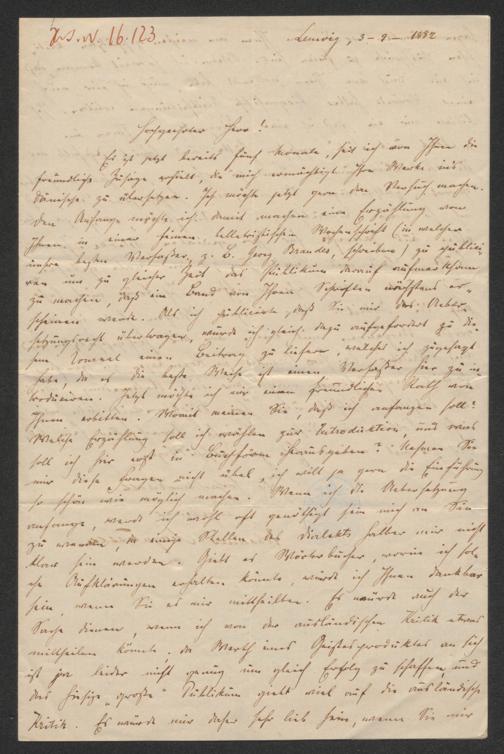 I.N. 16.123
Lemvig, 3-9-1882
Hochgeehrter Herr!
Es ist jetzt bereits fünf Monate, seit ich von Ihnen die
freundliche Zusage erhielt, die mich ermächtigt Ihre Werke ins
Dänische zu übersetzen. Ich möchte jetzt gern den Versuch machen.
Den Anfang möchte ich damit machen eine Erzählung von
Ihnen in einer feinen belletristischen Wochenschrift (in welcher
unsere besten Verfasser, z. B. Georg Brandes, schreiben) zu publici-
ren um zu gleicher Zeit das Publikum darauf aufmerksam
zu machen, daß ein Band von Ihren Schriften nächstens er-
scheinen werde. Als ich publicirte, daß Sie mir das Ueber-
setzungsrecht übertragen, wurde ich gleich dazu aufgefordert zu die-
sem Journal einen Beitrag zu liefern, welches ich zugesagt
habe, da es die beste Weise ist einen Verfasser hier zu in-
troduciren. Jetzt möchte ich um einen freundlichen Rath von
Ihnen erbitten. Womit meinen Sie, daß ich anfangen soll?
Welche Erzählung soll ich wählen zur Introduktion, und was
soll ich hier erst in Buchform herausgeben? Nehmen Sie
mir diese Fragen nicht übel, ich will ja gern die Einführung
so schön wie möglich machen. Wenn ich die Uebersetzung
anfange, werde ich wohl oft genöthigt sein mich an Sie
zu wenden, da einige Stellen des Dialekts halber mir nicht
klar sein werden. Giebt es Wörterbücher, worin ich sol-
che Aufklärungen erhalten könnte, würde ich Ihnen dankbar
sein, wenn Sie es mir mittheilten. Es würde auch der
Sache dienen, wenn ich von der ausländischen Kritik etwas
mittheilen könnte. Der Werth eines Geistesproduktes an sich
ist ja leider nicht genug um gleich Erfolg zu schaffen, und
das hiesige "große" Publikum giebt viel auf die ausländische
Kritik. Es würde mir daher sehr lieb sein, wenn Sie mir